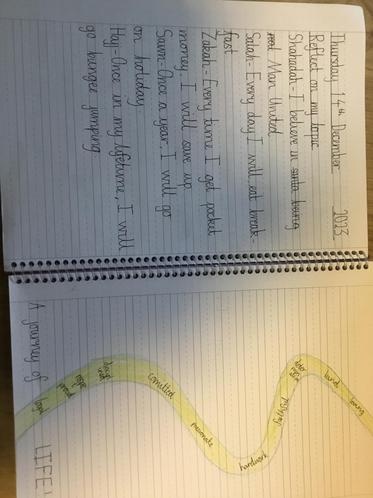 Thursday 14th December 2023
Reflect on my topic
Shahadah- I believe in santa being
red Man United
Salah- Every day I will eat break-
fast
Zakah- Every time I get pocket
money, I will save up
Sawn- Once a year, I will go
on holiday
Hajj- Once in my lifetime, I will
go bungee jumping
A journey of loyal LIFE!
proud
hope
committed
passionate
hardwork
faithful
kind
loving